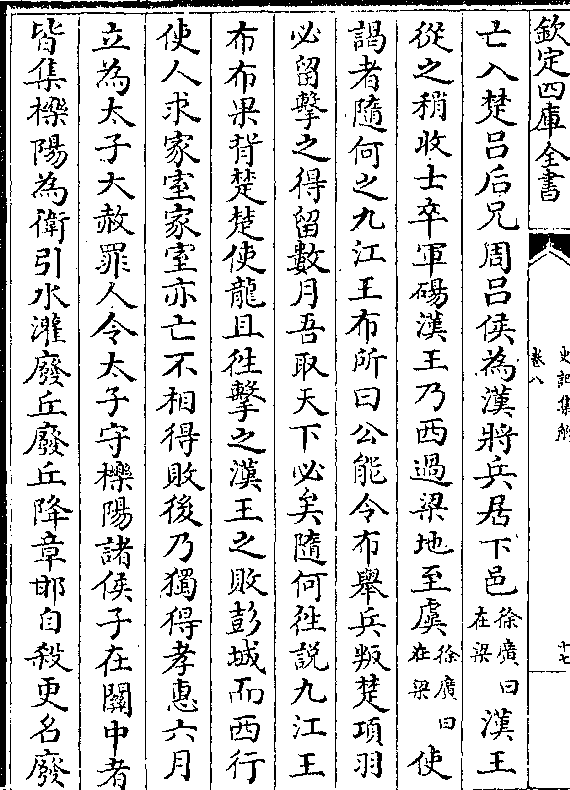 欽定四庫全書
史記集解
卷八
十七
亡入楚呂后兄周呂侯為漢將兵居下邑徐廣曰在梁漢王
從之稍收士卒軍碭漢王乃西過梁地至虞徐廣曰在梁使
謁者隨何之九江王布所曰公能令布舉兵叛楚項羽
必留擊之得留數月吾取天下必矣隨何徃説九江王
布布果背楚楚使龍且徃擊之漢王之敗彭城而西行
使人求家室家室亦亡不相得敗後乃獨得孝惠六月
立為太子大赦罪人令太子守櫟陽諸侯子在關中者
皆集櫟陽為衛引水灌廢丘廢丘降章邯自殺更名廢